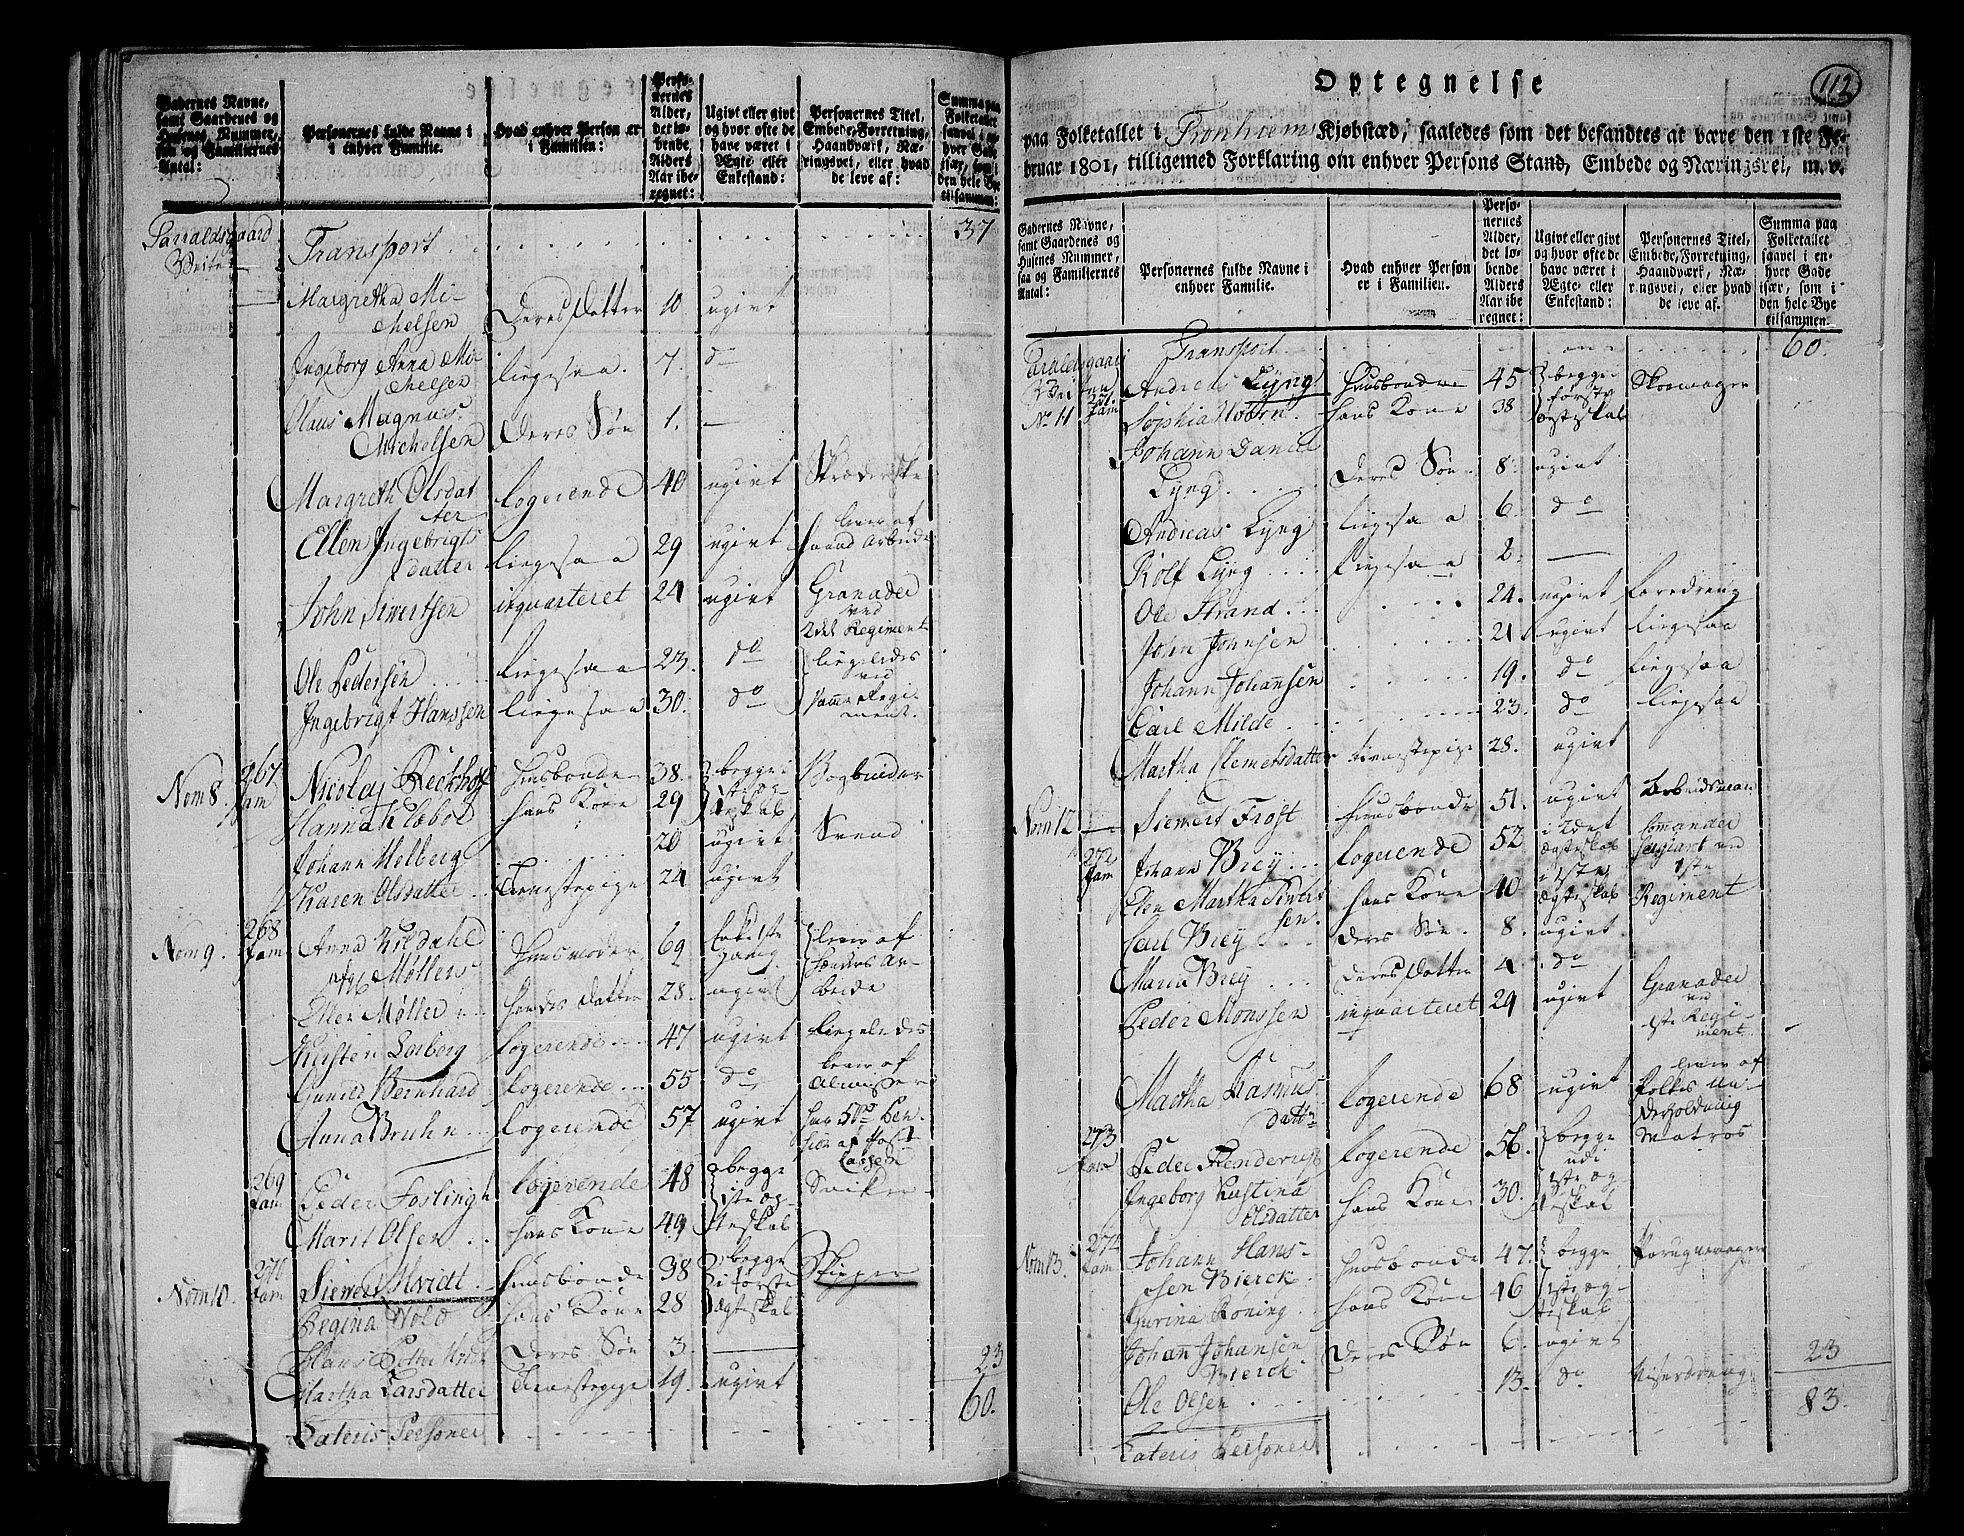 Gadernes Navne,
samt Gaardenes og
Husenes Nummer,
saa og Familiernes
Antal:
Personernes fulde Navne i
i enhver Familie.
Hvad enhver Person er
i Familien:
Perso-
nernes
Alder,
det lø-
bende
Alders
Aar ibe-
regnet:
Ugivt eller givt
og hvor ofte de
have været i
Ægte eller
Enkestand:
Personernes Titel,
Embede, Forretning,
Haandværk, Næ-
ringsvei, eller hvad
de leve af:
Summa paa
Folketallet
saavel i en-
hver Gade
især, som i
den hele Bye
tilsammen:
Transport 37
Margretha Mi-
chelsen Deres Datter 10 ugivt
Ingeborg Anna Mi-
chelsen ligesaa 7. do
Claus Magnus
Michelsen Deres Søn 1. —
Margreth Olsdat
ter logerende 40 ugivt
Ellen Ingebrigts
datter ligesaa 29 ugivt lever af
haand Arbeide
John Sivertsen inqvarteret 24 ugivt Granadeer
ved
2det Regiment
Ole Pedersen ligesaa 23. do ligeledes
ved
Ingebrigt Hanssen ligesaa 30. do samme Regi
ment.
Nom 8. 267 Fam Nicolaj Reckhof Huusbonde 38. begge i Bogbinder
Hannah hans Kone 29 1ste og-
teskab
Johann Helberg 20 ugivt Svend
Karen Olsdatter Tienestepige 24 ugivt
Nom 9. 268 Fam Anna Kildahl Huusmoder 69 Enke 1ste lever af
Møllers gang hænders Ar-
Ellen Møller hendes Datter 28. ugivt beide
Kirsten Lorberg logerende 47 ugivt ligeledes
Gunild Bernhard logerende 55 do lever af
Almisser
Anna Bruhn logerende 57 ugivt har Pen-
sion af Post
Cassen
269 Fam Peder Foslingh logerende 48 begge
1ste og-
Marit Olsen hans Kone 49 teskab
Nom 10. 270 Fam Siewert Hvidt Huusbonde 38 begge Skipper
i første
Regina Wold hans Kone 28 Ægteskab
Hans Hvidt Deres Søn 3. —
Martha Larsdatter Tienestepige 19. ugivt 23
60.
Lateris Personer
112
Optegnelse
paa Folketallet i Tronhiems Kjøbstæd, saaledes som det befandtes at være den 1ste Fe-
bruar 1801, tilligemed Forklaring om enhver Persons Stand, Embede og Næringsvei, m. v.
Gadernes Navne,
samt Gaardenes og
Husenes Nummer,
saa og Familiernes
Antal:
Personernes fulde Navne i
enhver Familie.
Hvad enhver Person
er i Familien.
Perso-
nernes
Alder,
det lø-
bende
Alders
Aar ibe
regnet:
Ugivt eller givt
og hvor ofte de
have været i
Ægte eller
Enkestand:
Personernes Titel,
Embede, Forretning,
Haandværk, Næ-
ringsvei, eller hvad
de leve af.
Summa paa
Folketallet
saavel i en-
hver Gade
især, som i
den hele Bye
tilsammen.
Transport 60.
Andreas Lyng Huusbonde 45 begge i Skoemager
No 11 271 Fam Sophia Hoorn hans Kone 38 første
Ægteskab
Johann Daniel
Lyng Deres Søn 8. ugivt
Andreas Lyng ligesaa 6. do
Rolf Lyng ligesaa 2. —
Ole Strand 24. ugivt Læredreng
John Johnsen 21 ugivt ligesaa
Johann Johansen 19. do ligesaa
Carl Milde 23. do ligesaa
Martha Clemetsdatter tienestepige 28. ugivt
Nom 12 Siewert Frost Huusbonde 51. ugivt Arbeidsmand
272 Fam Johann Brey logerende 52 i 2det
Ægteskab
Elen Martha Sivert
sen hans Kone 40 i 1ste
Ægteskab 1ste
Regiment
Carl Brey deres Søn 8. ugivt
Maria Brey deres Datter 4 do
Peder Monssen inqvarteret 29 ugivt Granadeer
ved
1ste Regi-
ment.
Martha Rasmus
datter logerende 68 ugivt lever af
Folkes Un-
derholdning
273 Fam Peder logerende 56. begge Matros
udi
Ingeborg Kirstina
Olsdatter hans Kone 30. 1ste og-
teskab
Nom 13. 274 Fam Johann Hans-
sen Bierck Huusbonde 47. begge Parugmager
Gurina Roning hans Kone 46 1ste og-
teskab
Johan Johansen
Bierck Deres Søn 6. ugivt 23
Ole Olsen 13. do Viserdreng 83.
Lateris Personer